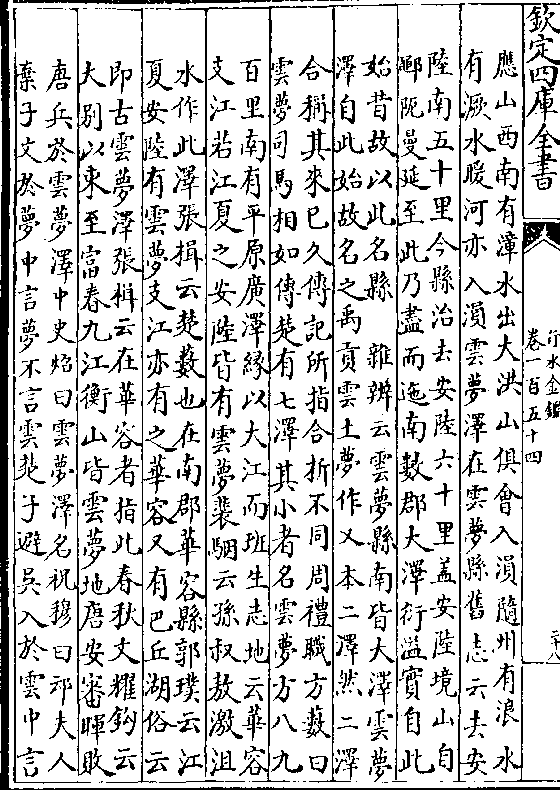 欽定四庫全書
行水金鑑
卷一百五十四
應山西南有漳水出大洪山俱會入溳隨州有浪水
有㵐水暖河亦入溳雲夢澤在雲夢縣舊志云去安
陸南五十里今縣治去安陸六十里蓋安陸境山自
鄳阨曼延至此乃盡而迤南數郡大澤衍溢實自此
始昔故以此名縣 雜辨云雲夢縣南皆大澤雲夢
澤自此始故名之禹貢雲土夢作乂本二澤然二澤
合稱其來已久傳記所指合析不同周禮職方藪曰
雲夢司馬相如傳楚有七澤其小者名雲夢方八九
百里南有平原廣澤緣以大江而班生志地云華容
支江若江夏之安陸皆有雲夢裴駰云孫叔敖激沮
水作此澤張揖云楚藪也在南郡華容縣郭璞云江
夏安陸有雲夢支江亦有之華容又有巴丘湖俗云
即古雲夢澤張楫云在華容者指此春秋文耀鈎云
大别以東至富春九江衡山皆雲夢地唐安審暉敗
唐兵於雲夢澤中史炤曰雲夢澤名祝穆曰䢵夫人
棄子文於夢中言夢不言雲楚子避吳入於雲中言